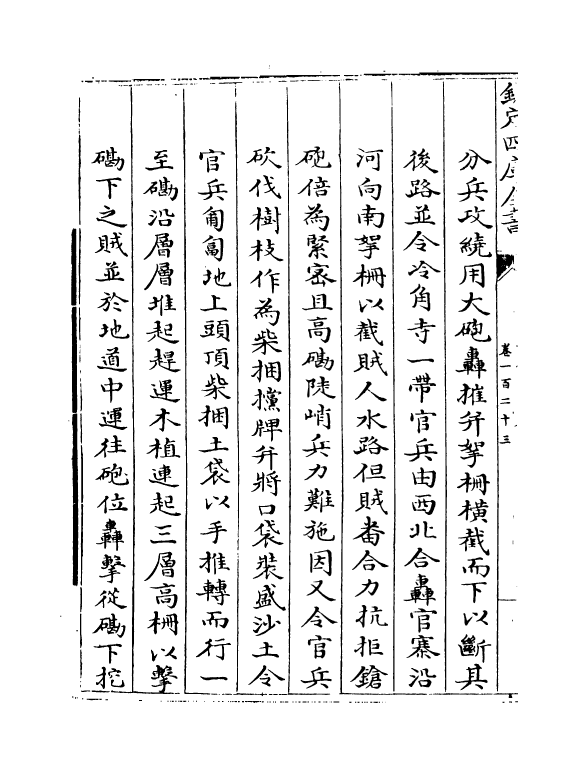 欽定四庫全書
卷一百二十三
分兵攻繞用大砲轟摧并拏柵橫截而下以斷其
後路並令冷角寺一帶官兵由西北合轟官寨沿
河向南拏柵以截賊人水路但賊畨合力抗拒鎗
砲倍為緊宻且高磡陡峭兵力難施因又令官兵
砍伐樹枝作為柴捆攩牌并將口袋裝盛沙土令
官兵匍匐地上頭頂柴捆土袋以手推轉而行一
至磡沿層層堆起趕運木植連起三層高柵以擊
磡下之賊並於地道中運往砲位轟擊從磡下挖